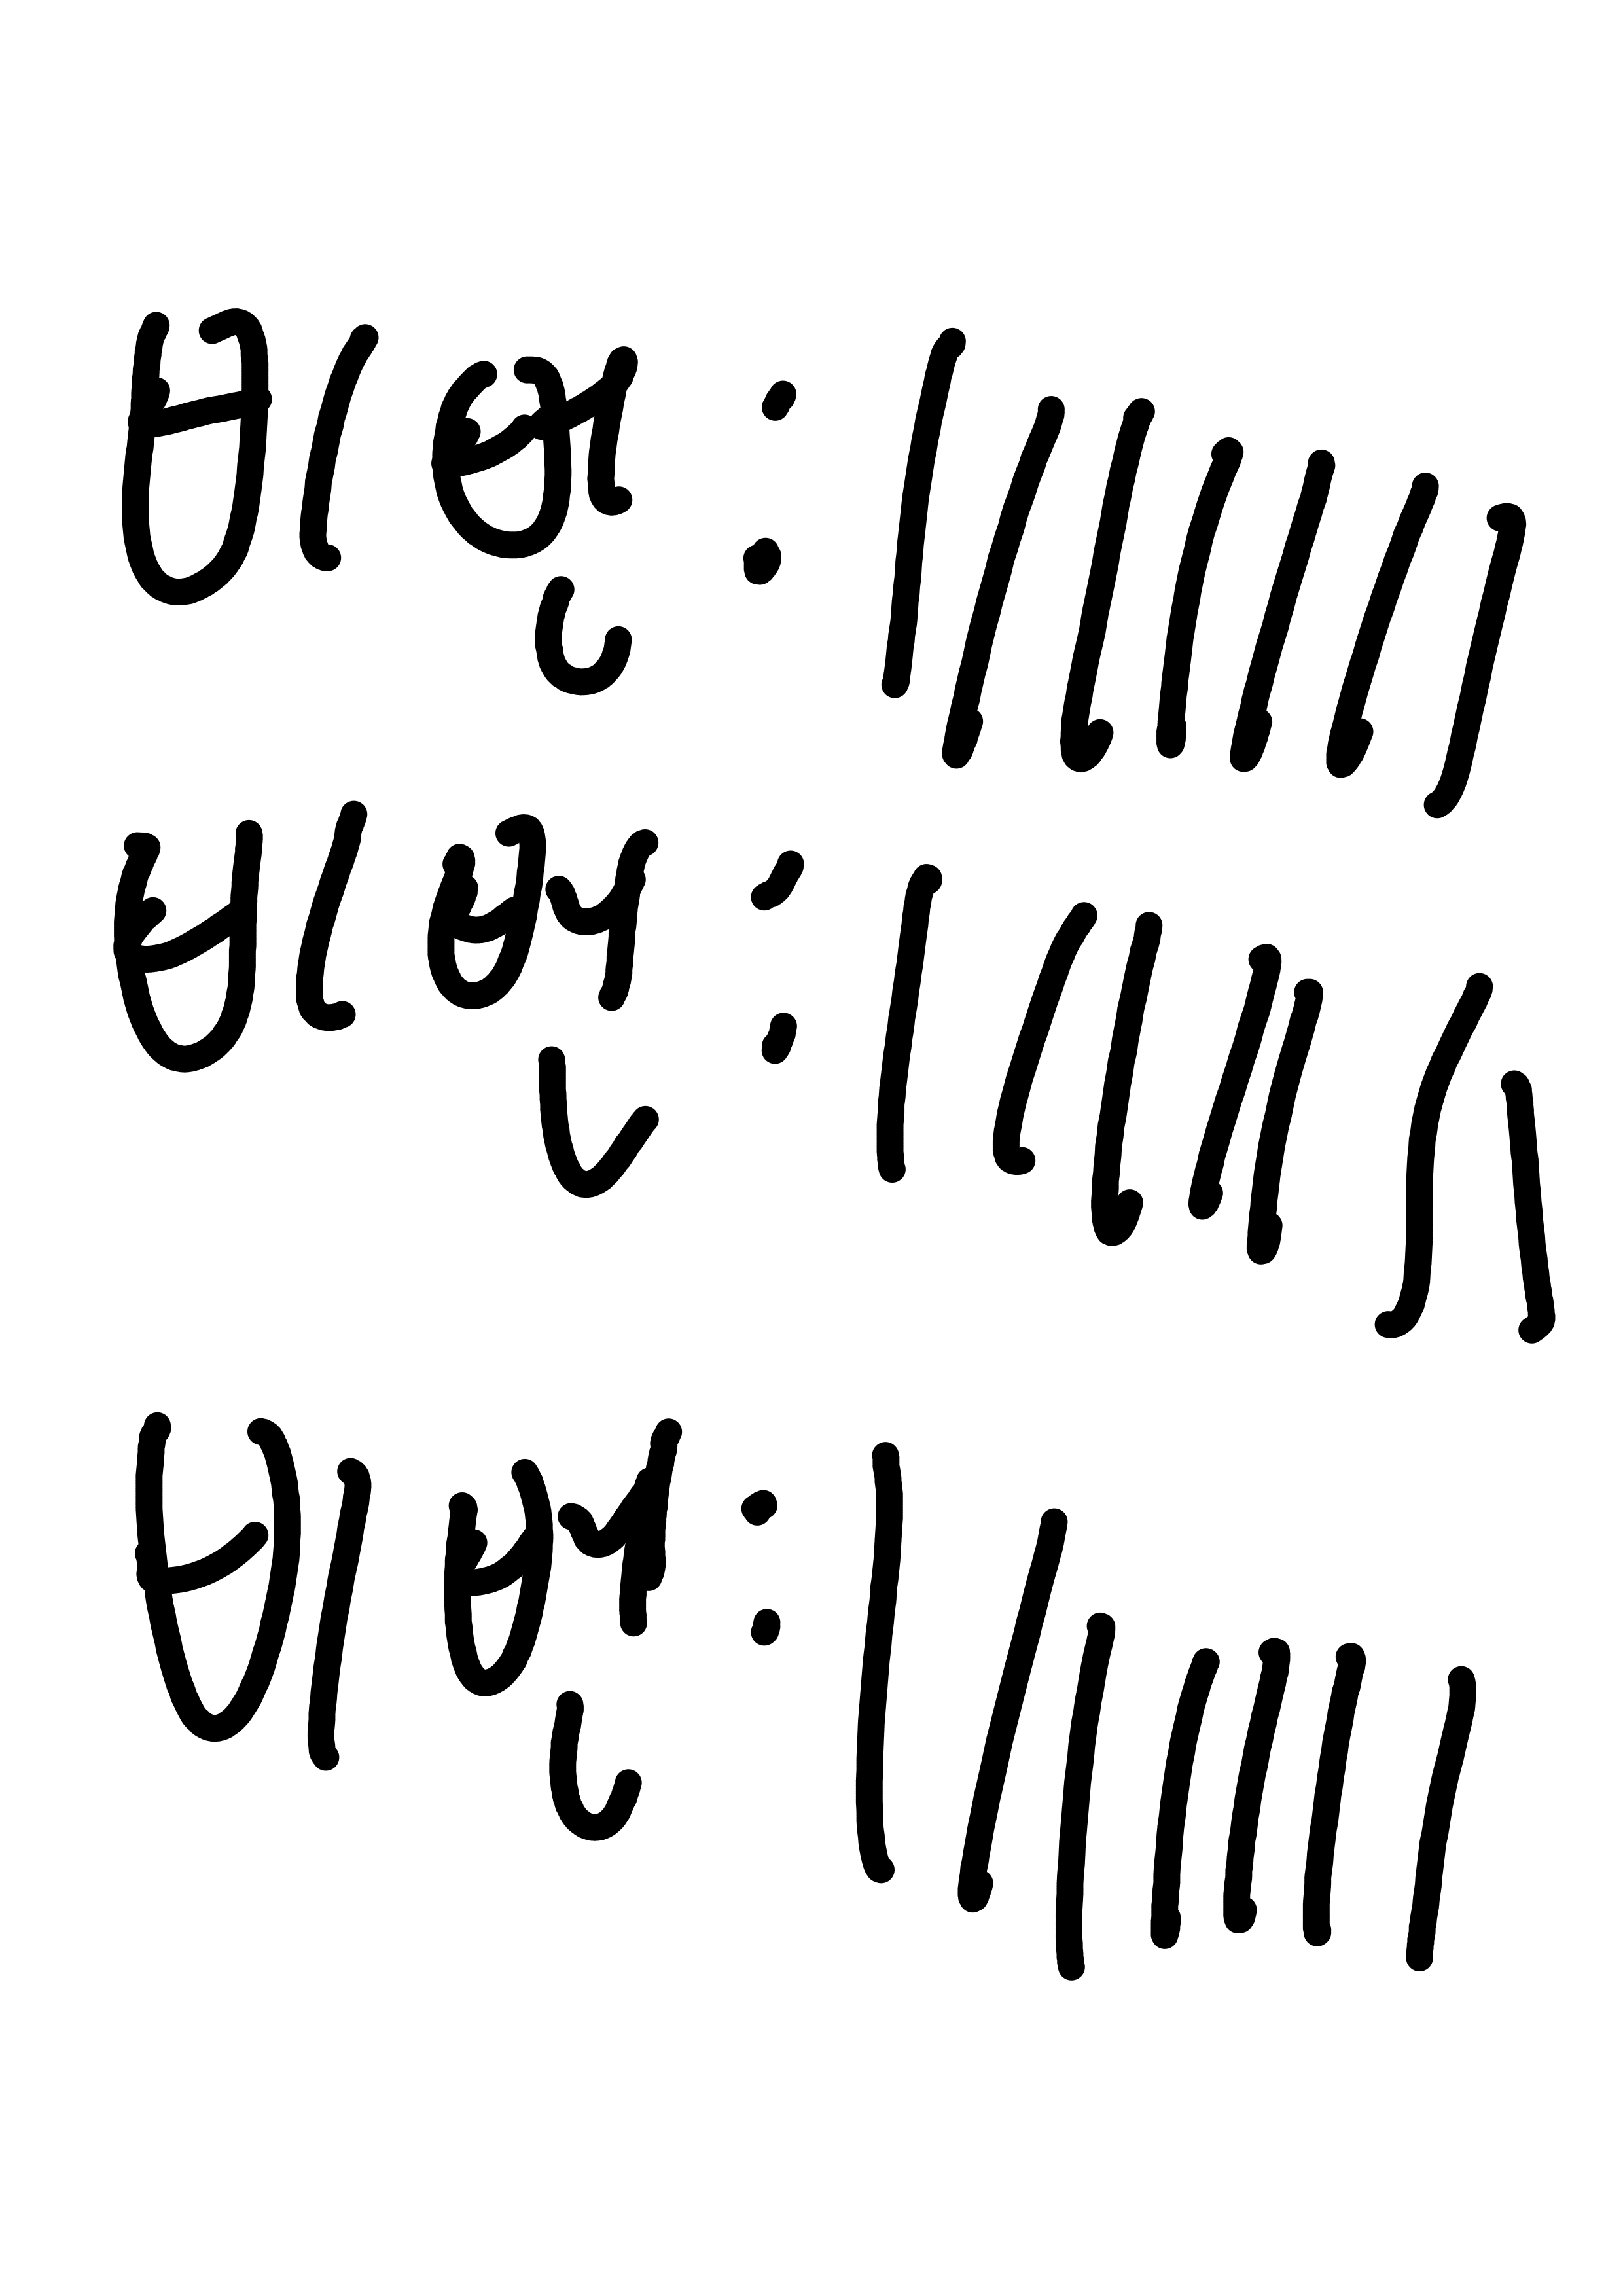 비번 : |||||||
비번 : |||||||
비번 : |||||||